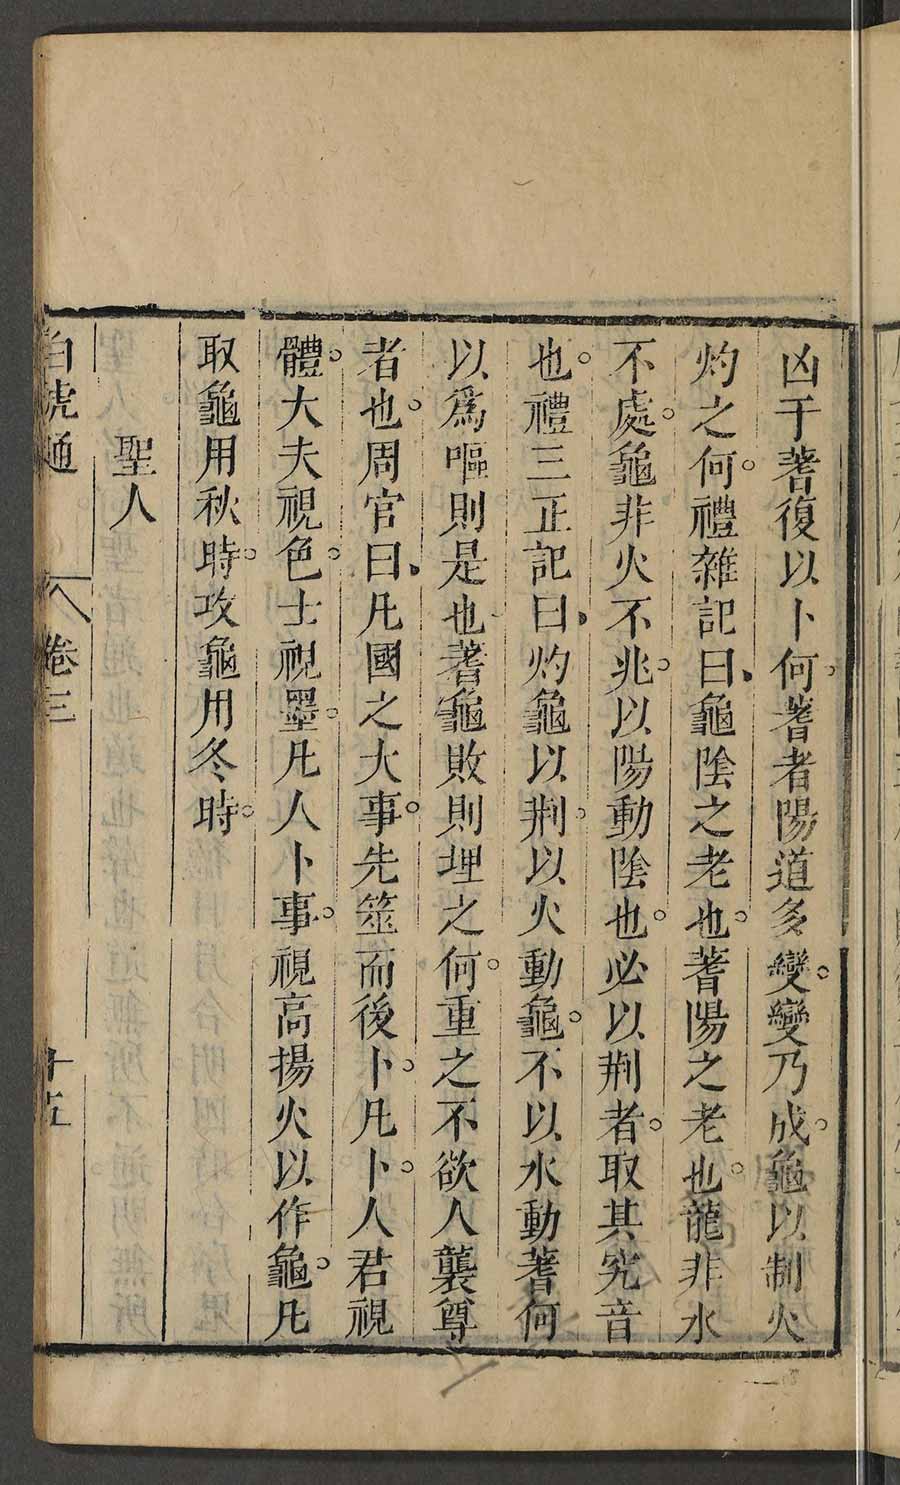 凶于蓍復以卜何。蓍者陽道多變。變乃成。龜以制火
灼之何。禮雜記曰、龜陰之老也。蓍陽之老也。龍非水
不處。龜非火不兆。以陽動陰也。必以荆者。取其究音
也。禮三正記曰、灼龜以荆。以火動龜。不以水動蓍何
以為嘔則是也蓍龜敗則埋之何。重之不欲人襲尊
者也。周官曰、凡國之大事。先筮而後卜。凡卜。人君視
體。大夫視色。士視墨。凡人卜事。視高揚火以作龜。凡
取龜用秋時。攻龜用冬時。
聖人
白虎通 卷三 十五